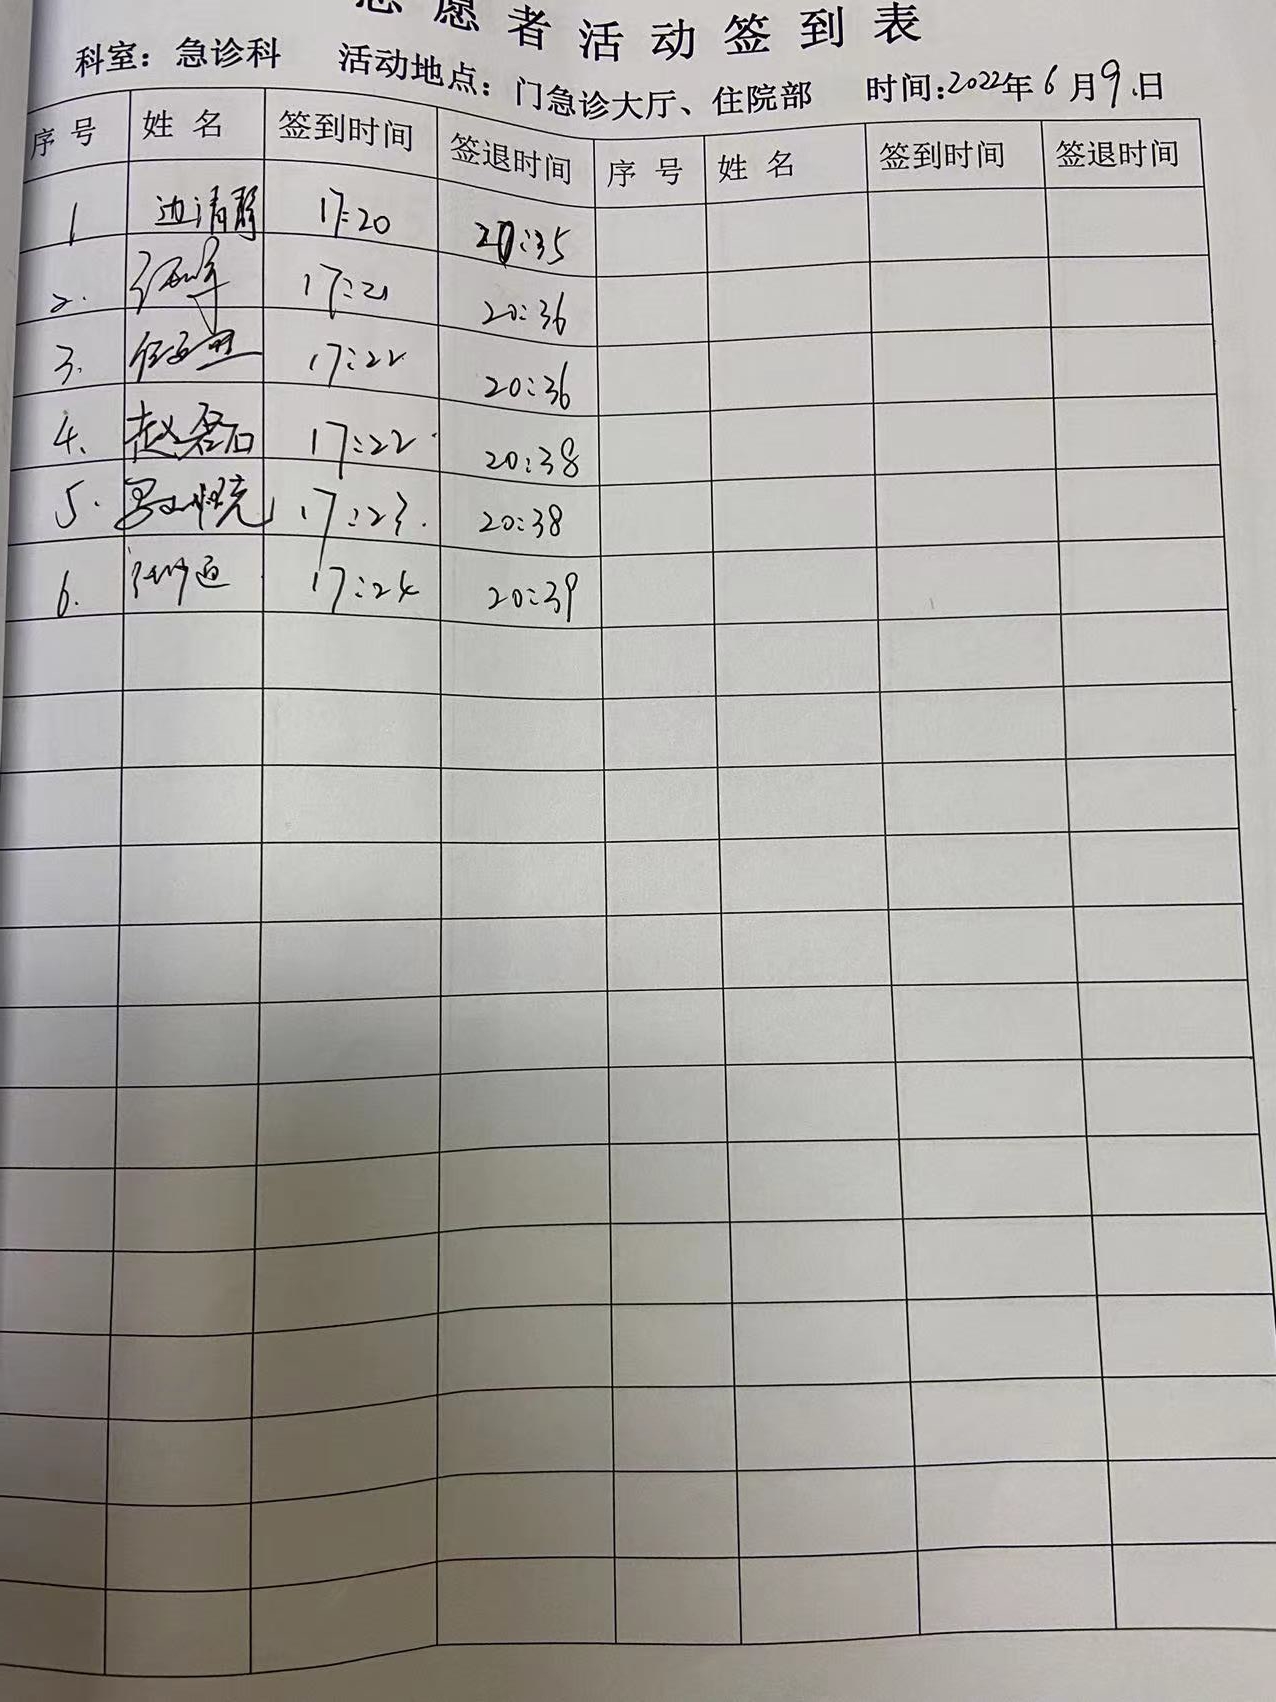 志愿者活动签到表
科室：急诊科 活动地点：门急诊大厅、住院部 时间：2022年6月9日
序号 姓名 签到时间 签退时间 序号 姓名 签到时间 签退时间
1 边清 17:20 20:35
2. 17:21 20:36
3. 17:22 20:36
4、 赵磊石 17:22 20:38
5. 17:23. 20:38
6. 17:24 20:39